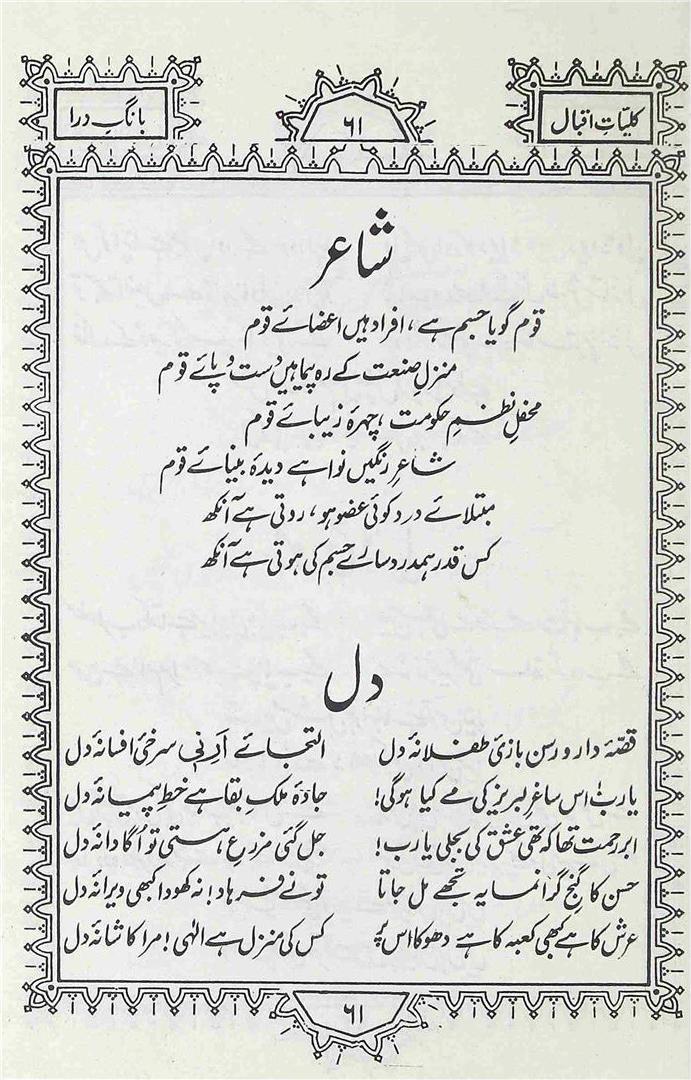 کلیاتِ اقبال
۶۱
بانگِ درا
شاعر
قوم گویا جسم ہے ، افراد ہیں اعضائے قوم
منزلِ صنعت کے رہ پیما ہیں دست و پائے قوم
محفلِ نظمِ حکومت ، چہرۂ زیبائے قوم
شاعرِ رنگیں نوا ہے دیدۂ بینائے قوم
مبتلائے درد کوئی عضو ہو ، روتی ہے آنکھ
کس قدر ہمدرد سارے جسم کی ہوتی ہے آنکھ
دل
قصۂ دار و رسن بازئ طفلانۂ دل التجائے اَرِنی سرخئ افسانۂ دل
یارب اس ساغرِ لبریز کی مے کیا ہوگی! جادۂ ملکِ بقا ہے خطِ پیمانۂ دل
ابرِ رحمت تھا کہ تھی عشق کی بجلی یارب! جل گئی مزرعِ ہستی تو اُگا دانۂ دل
حسن کا گنجِ گراں مایہ تجھے مل جاتا تو نے فرہاد! نہ کھودا کبھی ویرانۂ دل
عرش کا ہے کبھی کعبہ کا ہے دھوکا اس پر کس کی منزل ہے الٰہی! مرا کاشانۂ دل
۶۱